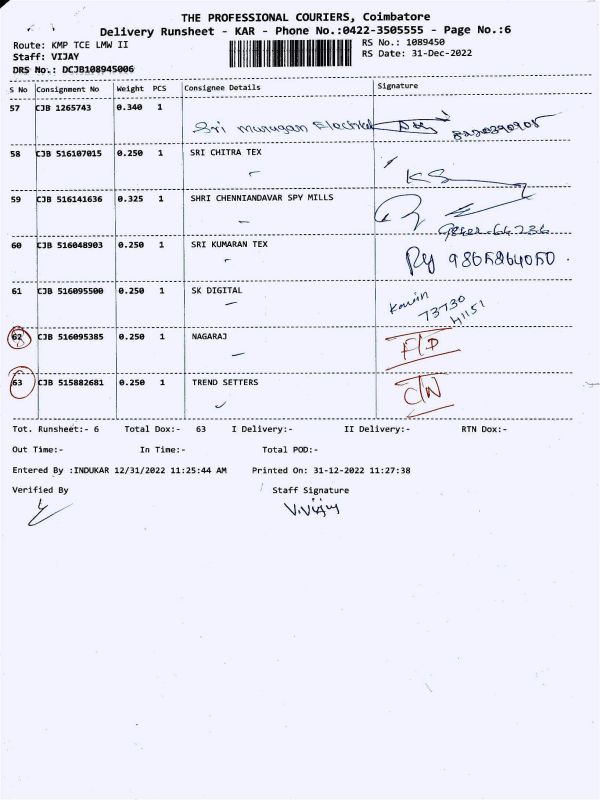 THE PROFESSIONAL COURIERS, Coimbatore
Delivery Runsheet - KAR - Phone No.:0422-3505555 - Page No.:6
Route: KMP TCE LMW II RS No.: 1089450
Staff: VIJAY RS Date: 31-Dec-2022
DRS No.: DCJB108945006
S No Consignment No Weight PCS Consignee Details Signature
57 CJB 1265743 0.340 1
Sri Murugan Electrical 8220390905
58 CJB 516107015 0.250 1 SRI CHITRA TEX
KS
59 CJB 516141636 0.325 1 SHRI CHENNIANDAVAR SPY MILLS
60 CJB 516048903 0.250 1 SRI KUMARAN TEX
Ry 9865864050.
61 CJB 516095500 0.250 1 SK DIGITAL
73730
41151
62 CJB 516095385 0.250 1 NAGARAJ
F/D
63 CJB 515882681 0.250 1 TREND SETTERS
C/N
Tot. Runsheet:- 6 Total Dox:- 63 I Delivery:- II Delivery:- RTN Dox:-
Out Time:- In Time:- Total POD:-
Entered By :INDUKAR 12/31/2022 11:25:44 AM Printed On: 31-12-2022 11:27:38
Verified By Staff Signature
V.Vijay